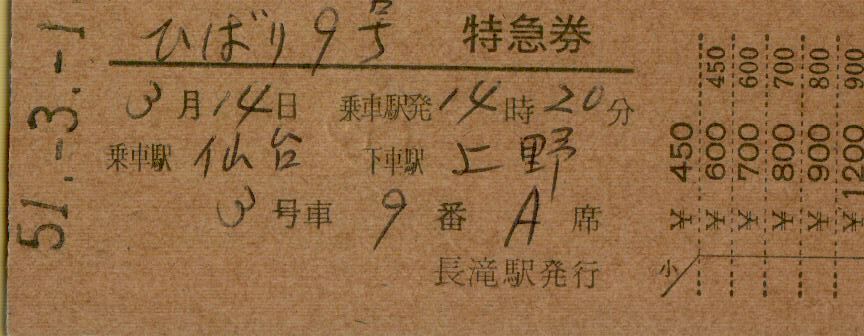 ひばり9号 特急券
3月14日 乗車駅発14時20分
乗車駅 仙台 下車駅 上野
3号車 9番 A席
長滝駅発行
51.-3.-1
小
¥450 450
¥600 600
¥700 700
¥800 800
¥900 900
¥1200